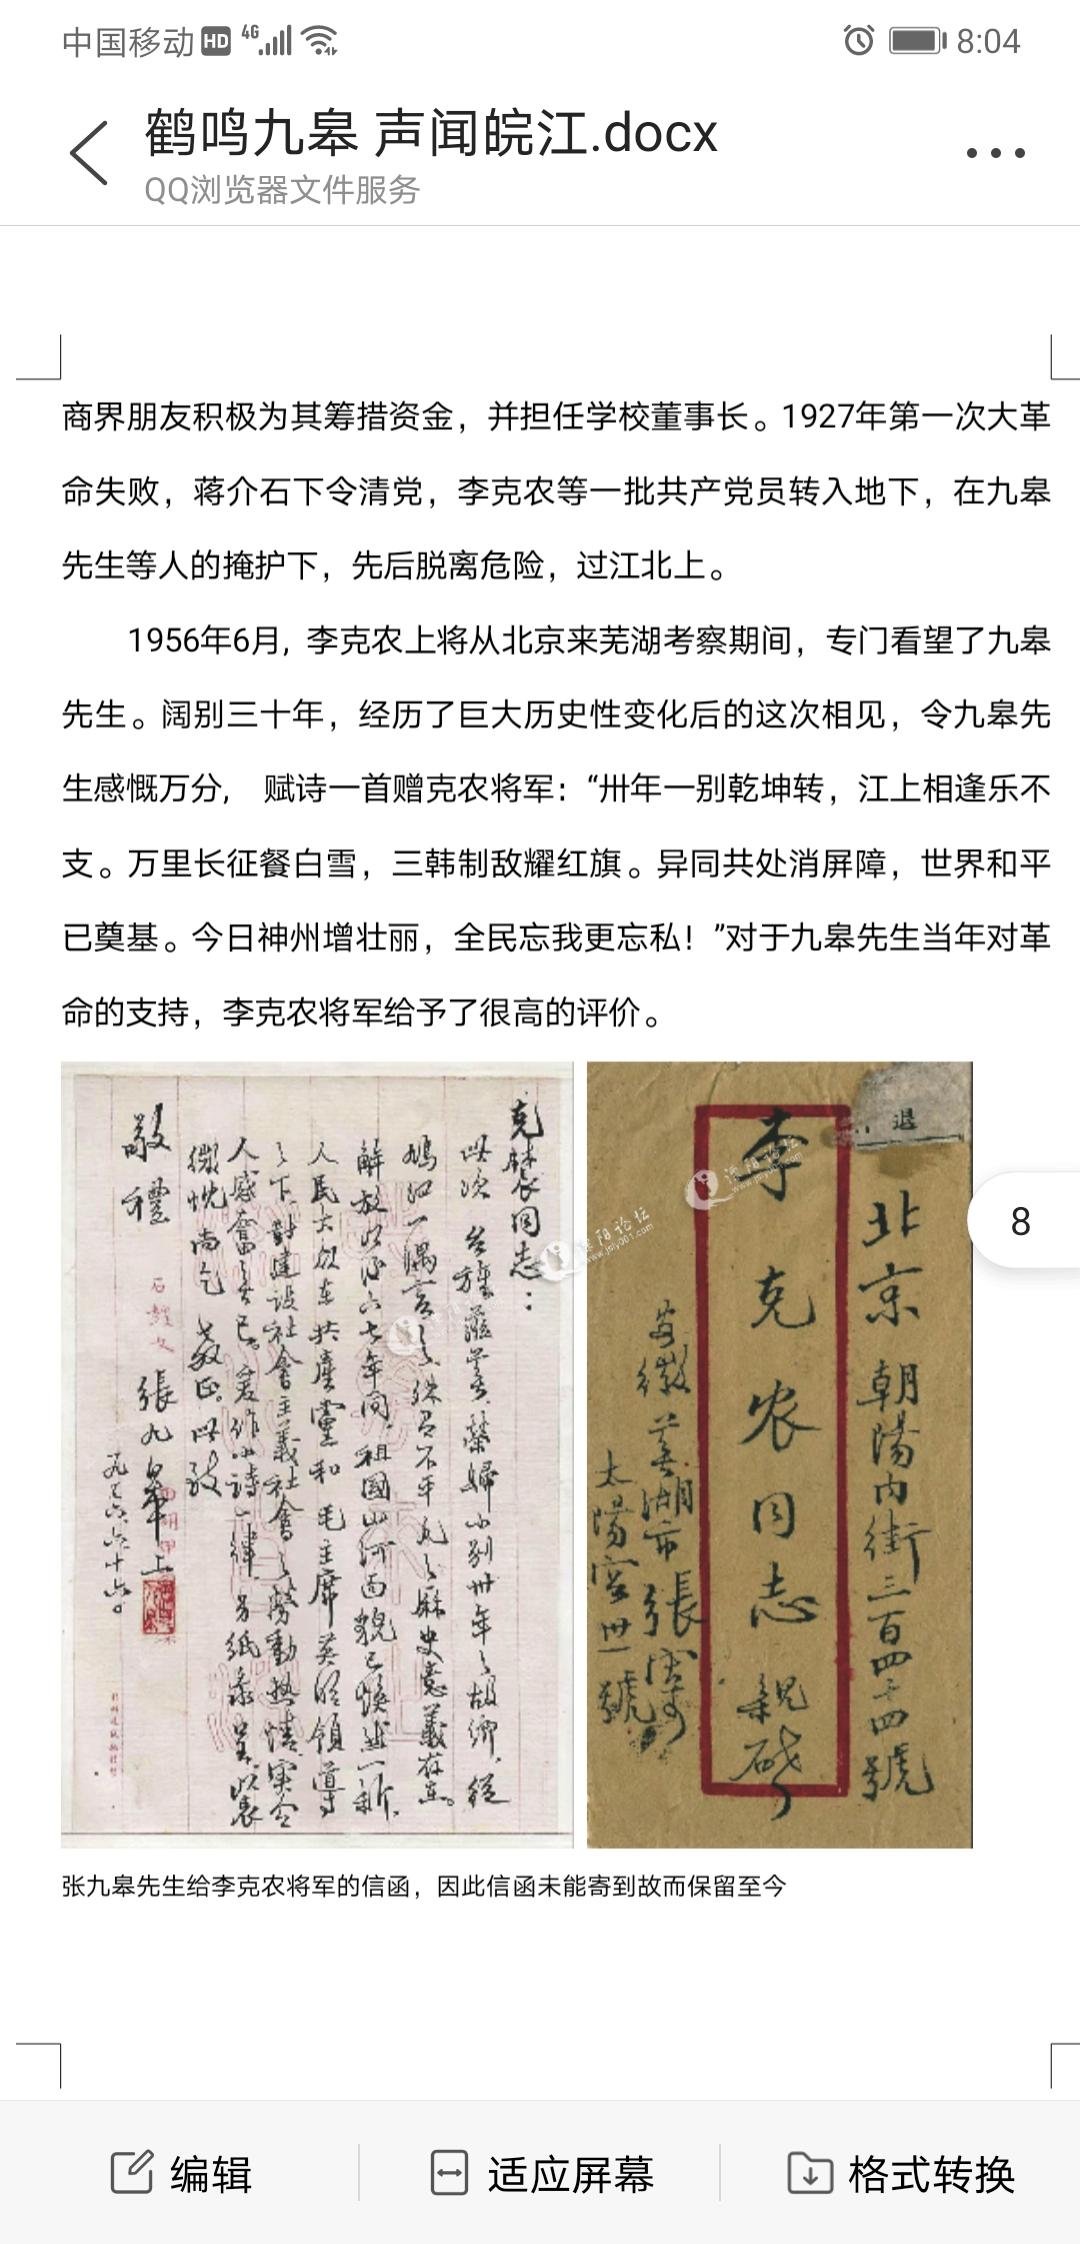 中国移动 HD 4G 8:04
鹤鸣九皋 声闻皖江.docx
QQ浏览器文件服务
商界朋友积极为其筹措资金，并担任学校董事长。1927年第一次大革
命失败，蒋介石下令清党，李克农等一批共产党员转入地下，在九皋
先生等人的掩护下，先后脱离危险，过江北上。
1956年6月, 李克农上将从北京来芜湖考察期间，专门看望了九皋
先生。阔别三十年，经历了巨大历史性变化后的这次相见，令九皋先
生感慨万分, 赋诗一首赠克农将军：“卅年一别乾坤转，江上相逢乐不
支。万里长征餐白雪，三韩制敌耀红旗。异同共处消屏障，世界和平
已奠基。今日神州增壮丽，全民忘我更忘私！”对于九皋先生当年对革
命的支持，李克农将军给予了很高的评价。
克農同志：
此次 台旌蒞蕪榮歸小别卅年之故鄉，從
鳩江一隅言之
解放以後六七年间，祖國山河面貌已焕然一新，
人民大众在共產黨和 毛主席英明領導
之下，對建設社會主義社會之勞動热情，实令
人感奮不已。爰作小詩一律，另纸录呈，以表
微忱，尚乞 教正。此致
敬禮
張九皋上
一九五六、六、十六。
退
北京朝陽内街三百四十四號
李克农同志 親啓
安徽蕪湖市張
太陽宫卅一號
溧阳论坛
www.jsly001.com
溧阳论坛
www.jsly001.com
8
张九皋先生给李克农将军的信函，因此信函未能寄到故而保留至今
编辑
适应屏幕
格式转换